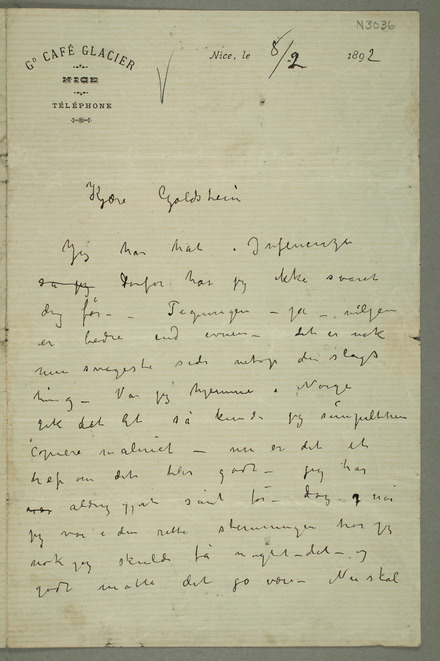 N3036
Gᴰ CAFÉ GLACIER
NICE
TÉLÉPHONE
Nice, le 8/2 1892
Kjære Goldstein
Jeg har hat Influenza
så jeg derfor har jeg ikke svaret
dig før — Tegningen — ja — viljen
er bedre end evnen — det er nok
min svageste side netop den slags
ting — Var jeg hjemme i Norge
gik det let så kunde jeg simpelthen
copiere maleriet — nu er det et
træf om det blir godt — jeg har
aldrig gjort sånt før — dog når
jeg var i den rette stemningen har jeg
nok jeg skulde få noget — det — og
godt måtte det jo være — Nu skal